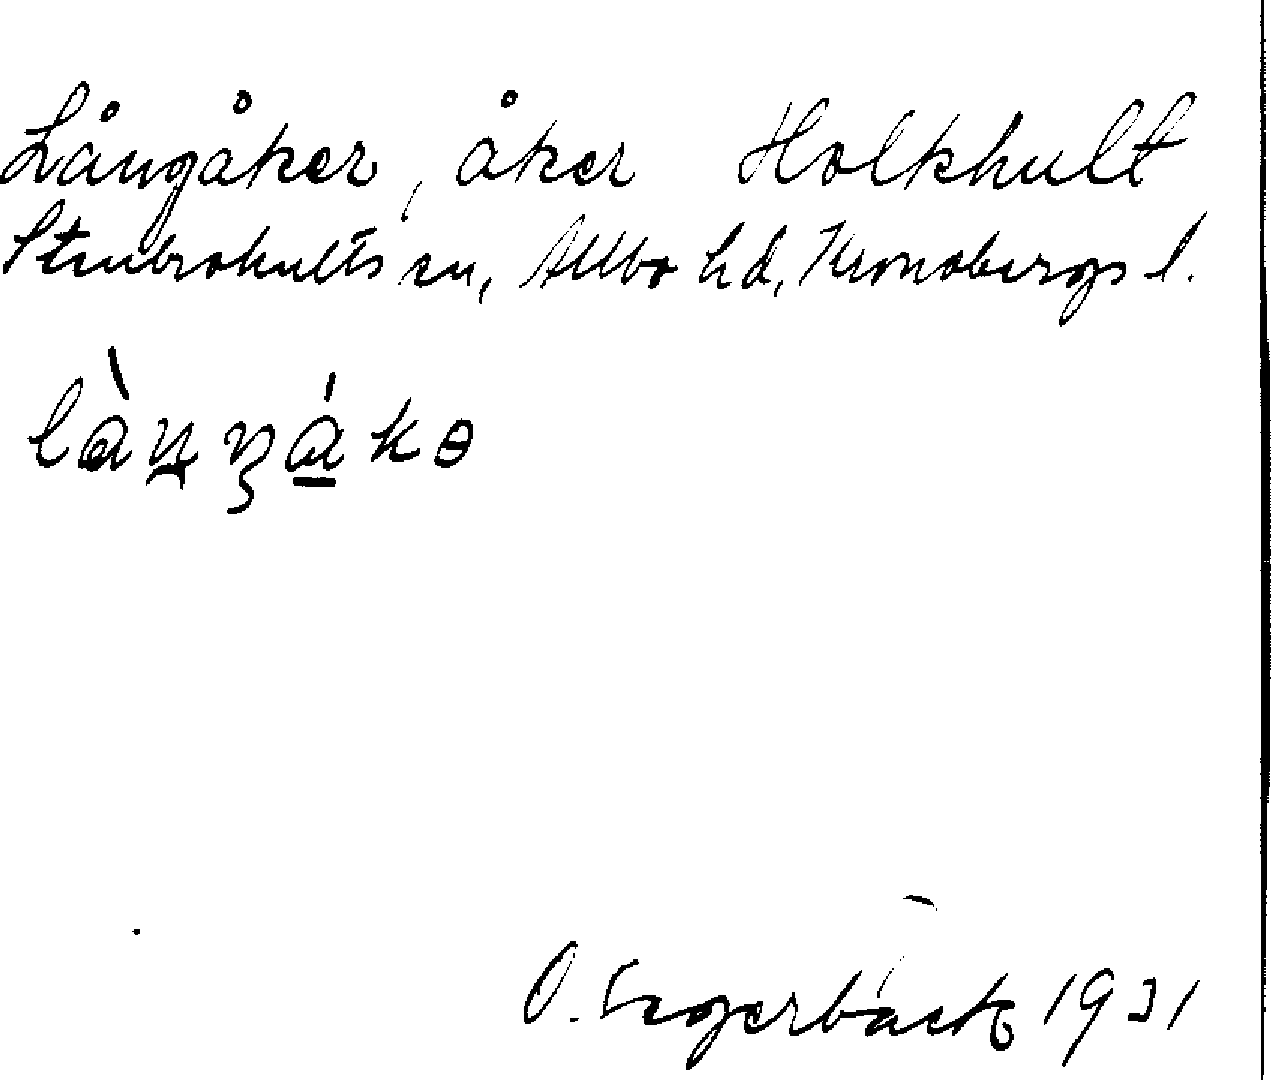 Långåker, åker Holkhult
Stenbrohults sn, Allbo hd, Kronobergs l.
O. Segerbäck 1931